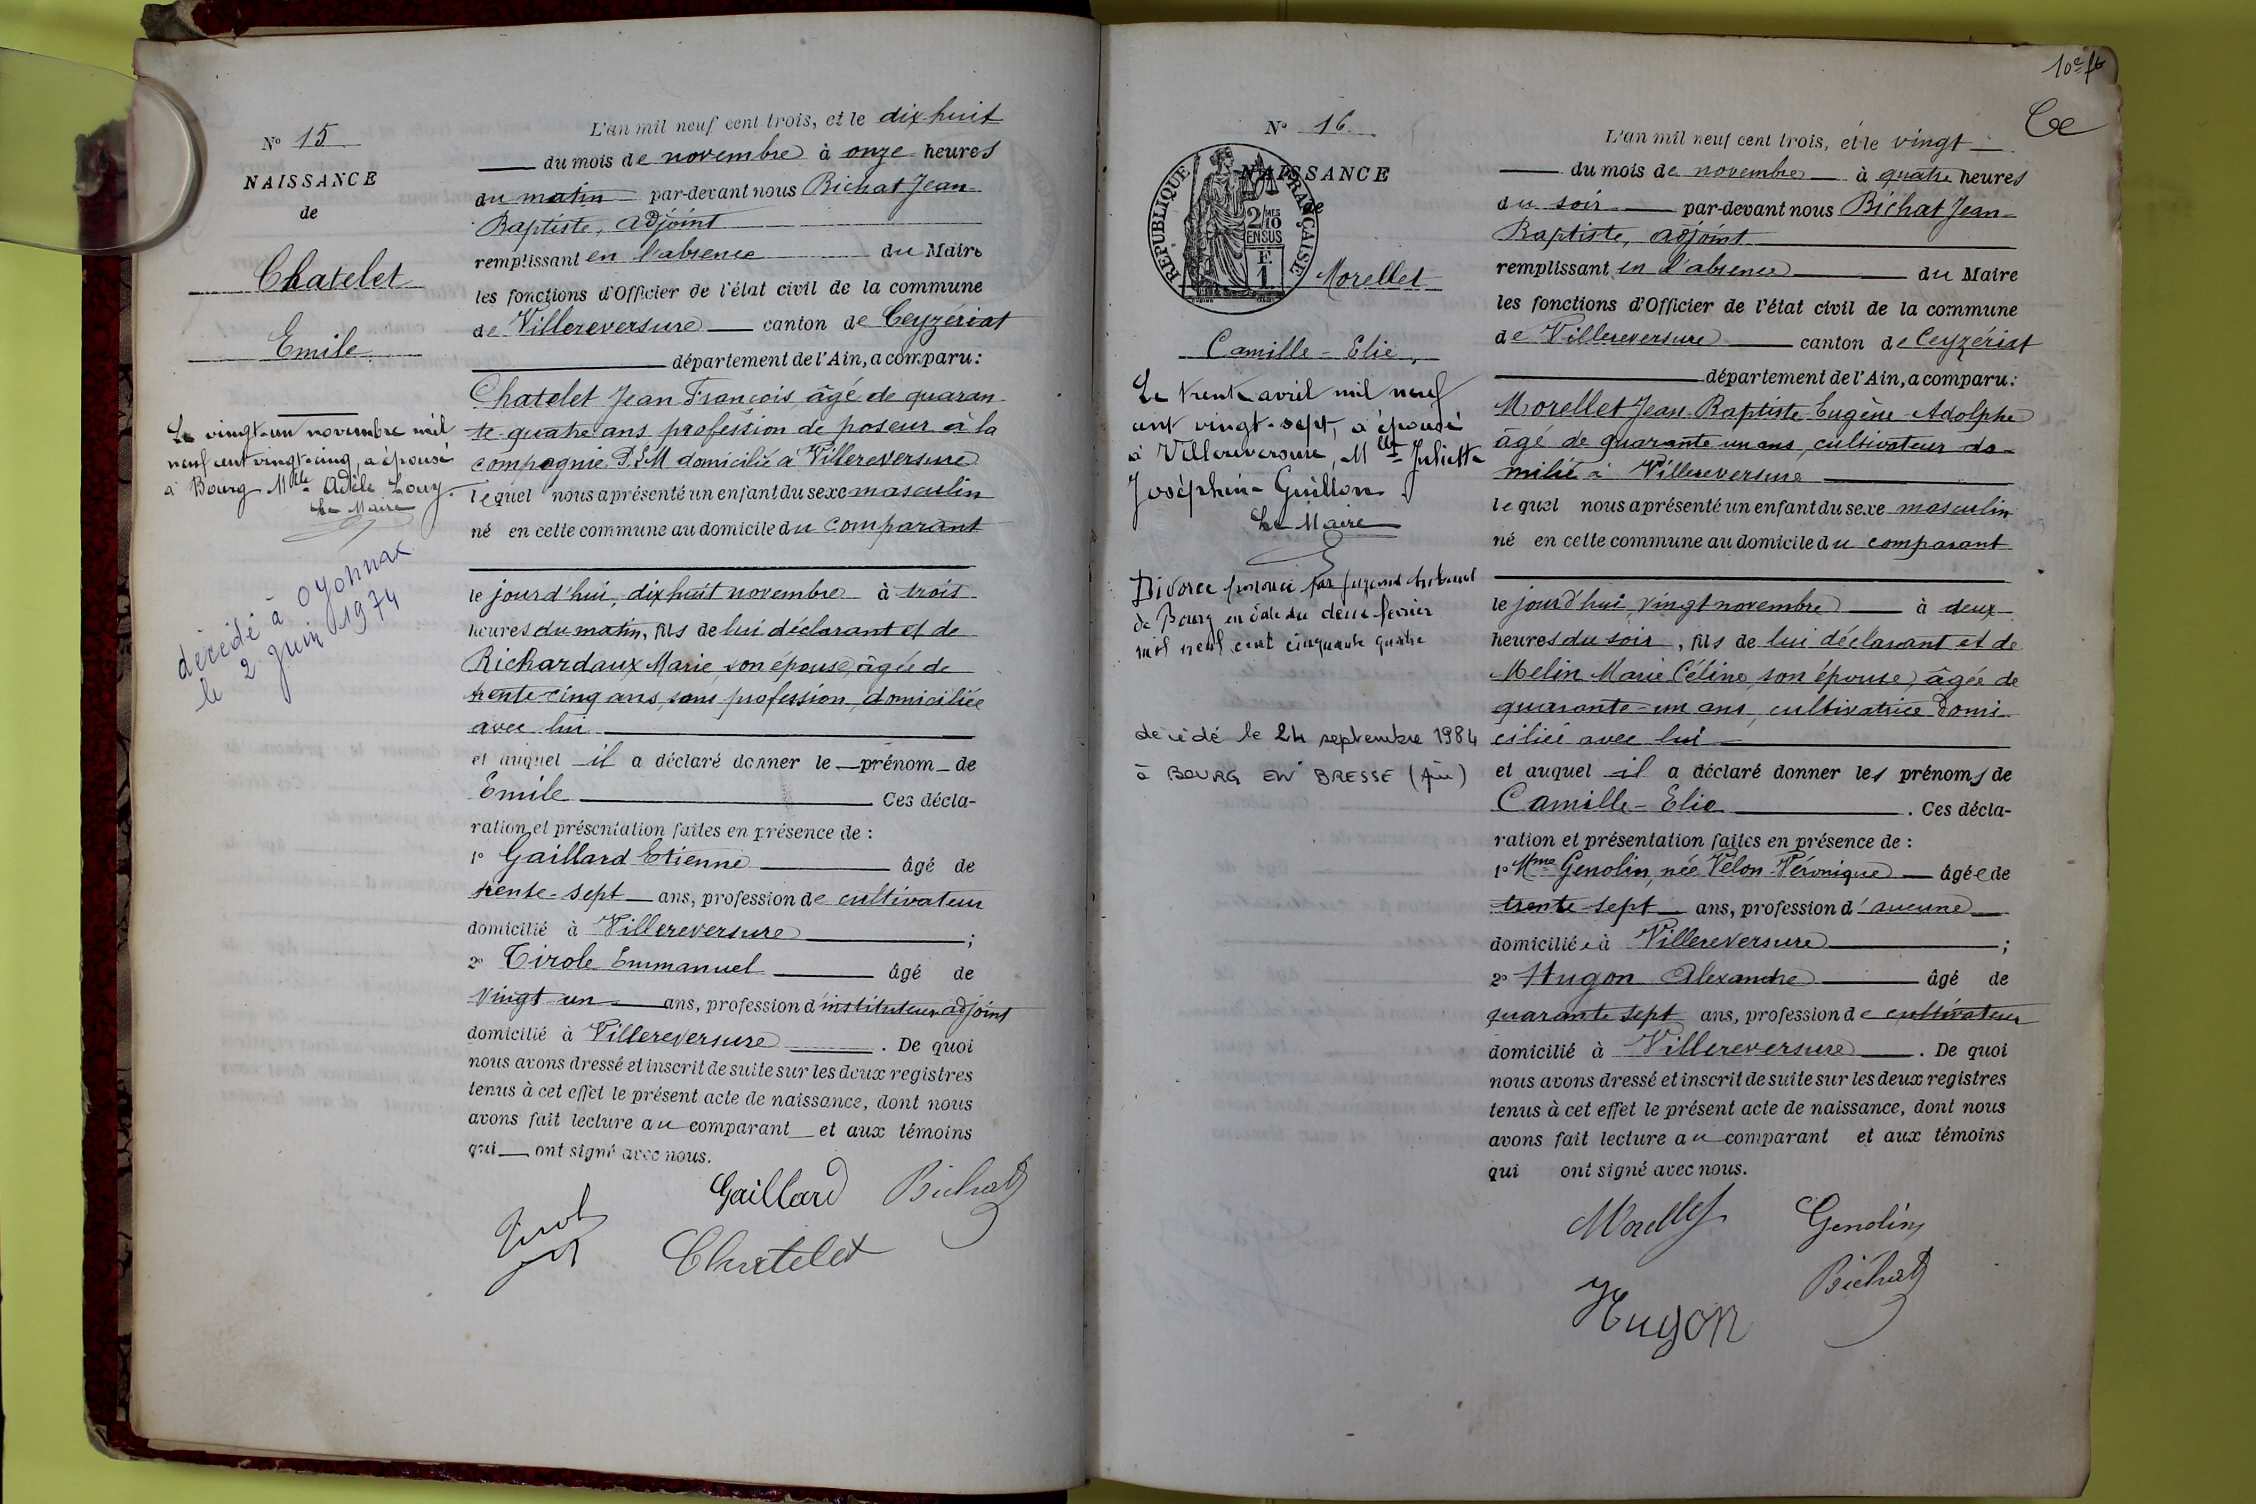 N° 15
NAISSANCE
de
Chatelet
Emile
Le vingt-un novembre mil
neuf cent vingt-cinq, a épousé
à Bourg Mlle Adèle
Le Maire
décédé à Oyonnax
le 2 juin 1974
L'an mil neuf cent trois, et le dix huit
du mois de novembre à onze heures
du matin par-devant nous Bichat Jean
Baptiste, adjoint
remplissant en l'absence du Maire
les fonctions d'Officier de l'état civil de la commune
de Villereversure canton de Ceyzériat
département de l'Ain, a comparu :
Chatelet Jean François âgé de quaran
te-quatre ans profession de poseur à la
compagnie P.L.M domicilié à Villereversure
lequel nous a présenté un enfant du sexe masculin
né en cette commune au domicile du comparant
le jourd'hui, dix huit novembre à trois
heures du matin, fils de lui déclarant et de
Richardaux Marie, son épouse, âgée de
trente-cinq ans, sans profession, domiciliée
avec lui
et auquel il a déclaré donner le prénom de
Emile Ces décla-
ration et présentation faites en présence de :
1° Gaillard Etienne âgé de
trente-sept ans, profession de cultivateur
domicilié à Villereversure ;
2° Tirole Emmanuel âgé de
vingt un ans, profession d'instituteur adjoint
domicilié à Villereversure . De quoi
nous avons dressé et inscrit de suite sur les deux registres
tenus à cet effet le présent acte de naissance, dont nous
avons fait lecture au comparant et aux témoins
qui ont signé avec nous.
Gaillard Bichat
Chatelet
10e ft
N° 16
NAISSANCE
de
RÉPUBLIQUE FRANÇAISE
2/10 MES
EN SUS
F.
1
Morellet
Camille-Elie,
Le trente avril mil neuf
cent vingt-sept, a épousé
à Villereversure, Mlle Juliette
Joséphine Guillon
Le Maire
Divorce prononcé par jugement tribunal
de Bourg en date du deux février
mil neuf cent cinquante quatre
décédé le 24 septembre 1984
à BOURG EN BRESSE (Ain)
L'an mil neuf cent trois, et le vingt
du mois de novembre à quatre heures
du soir par-devant nous Bichat Jean
Baptiste, adjoint
remplissant en l'absence du Maire
les fonctions d'Officier de l'état civil de la commune
de Villereversure canton de Ceyzériat
département de l'Ain, a comparu :
Morellet Jean-Baptiste-Eugène-Adolphe
âgé de quarante-un ans, cultivateur do-
milié à Villereversure
lequel nous a présenté un enfant du sexe masculin
né en cette commune au domicile du comparant
le jourd'hui, vingt novembre à deux
heures du soir, fils de lui déclarant et de
Melin Marie Céline, son épouse, âgée de
quarante-un ans, cultivatrice domi
ciliée avec lui
et auquel il a déclaré donner les prénoms de
Camille-Elie . Ces décla-
ration et présentation faites en présence de :
1° Mme Genolin, née Vélon Véronique âgée de
trente-sept ans, profession d'aucune
domiciliée à Villereversure ;
2° Hugon Alexandre âgé de
quarante sept ans, profession de cultivateur
domicilié à Villereversure . De quoi
nous avons dressé et inscrit de suite sur les deux registres
tenus à cet effet le présent acte de naissance, dont nous
avons fait lecture au comparant et aux témoins
qui ont signé avec nous.
Morellet Genolin
Hugon Bichat